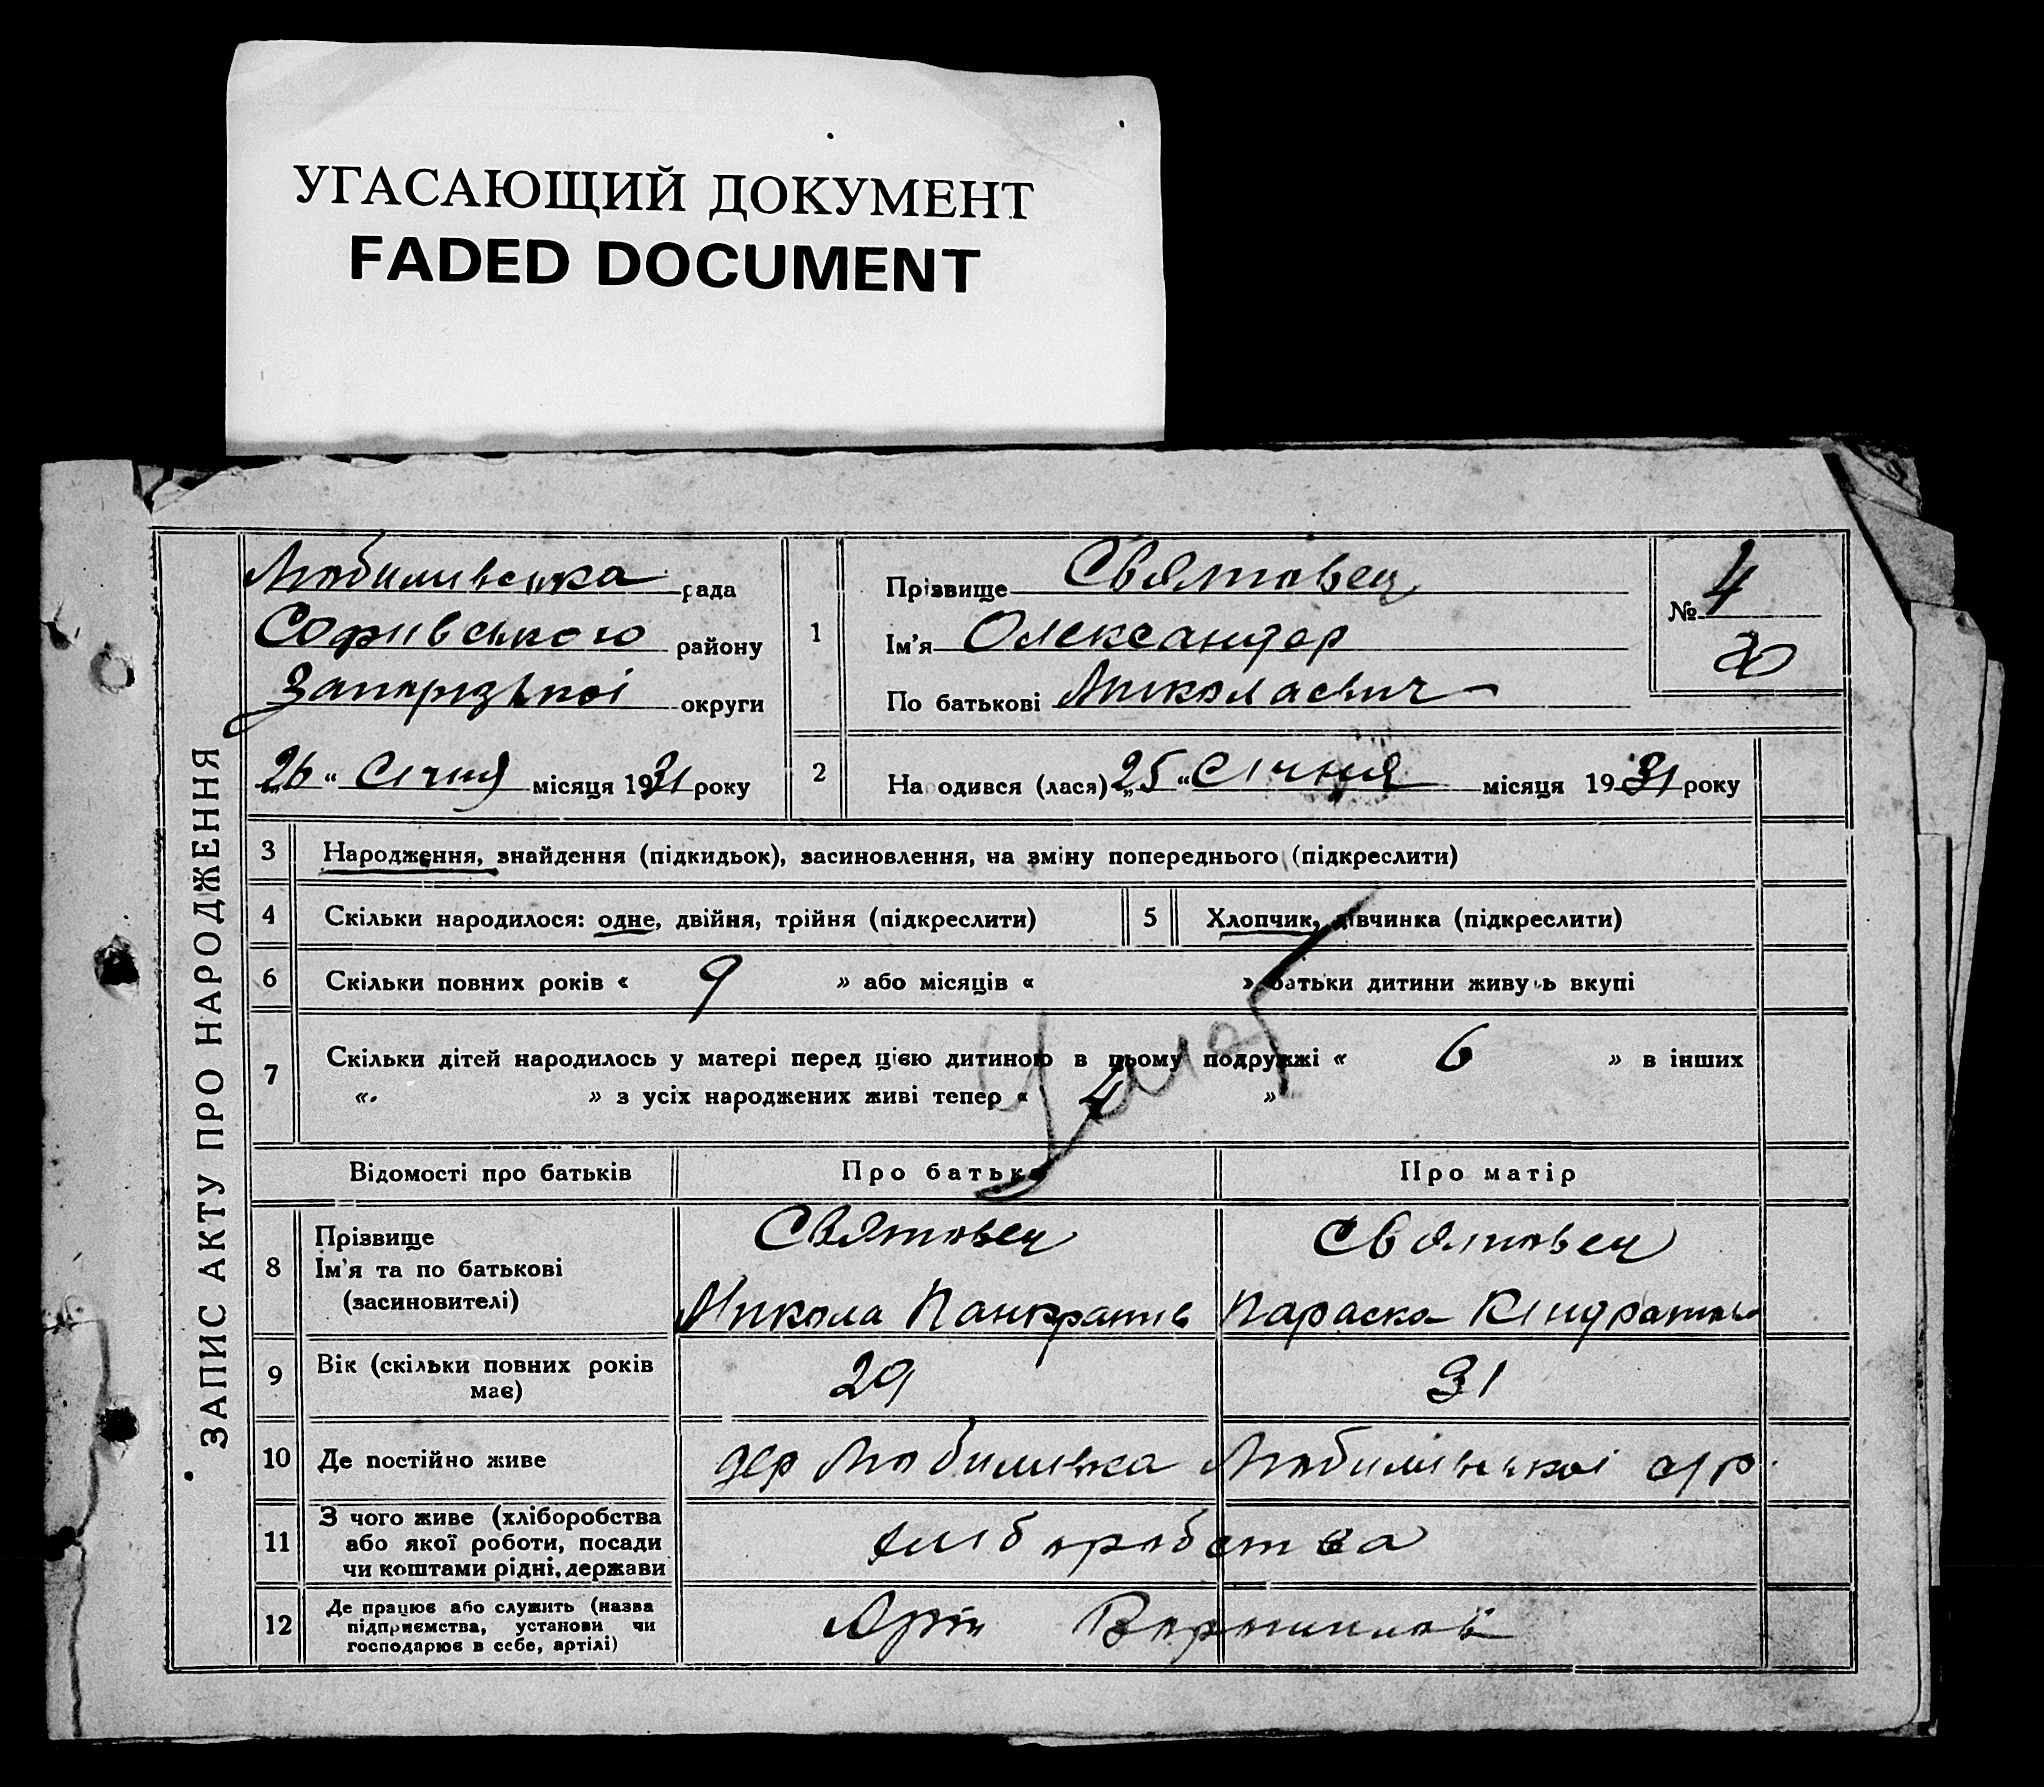 УГАСАЮЩИЙ ДОКУМЕНТ
FADED DOCUMENT
ЗАПИС АКТУ ПРО НАРОДЖЕННЯ
Любимивська рада
Софиївського району
Запорізької округи
„26“ Січня місяця 1931 року
1
Прізвище Святовец
Ім'я Олександор
По батькові Миколаєвич
№ 4
2
Народився (лася) „25“ Січня місяця 1931 року
3 Народження, знайдення (підкидьок), засиновлення, на зміну попереднього (підкреслити)
4 Скільки народилося: одне, двійня, трійня (підкреслити) 5 Хлопчик, дівчинка (підкреслити)
6 Скільки повних років « 9 » або місяців « » батьки дитини живуть вкупі
7 Скільки дітей народилось у матері перед цією дитиною в цьому подружжі « 6 » в інших
« » з усіх народжених живі тепер « 4 »
Відомості про батьків Про батька Про матір
8 Прізвище
Ім'я та по батькові
(засиновителі)
Святовец Святовец
Микола Панкратів Параска Кіндратівна
9 Вік (скільки повних років має) 29 31
10 Де постійно живе дер Любимивка Любимівської с/р.
11 З чого живе (хліборобства
або якої роботи, посади
чи коштами рідні, держави
хліборобства
12 Де працює або служить (назва
підприємства, установи чи
господарює в себе, артілі)